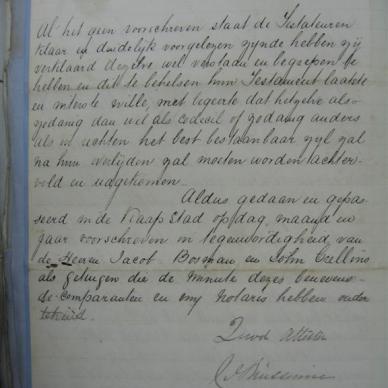 Al het geen voorschreven staat de Testateuren
klaar en duidelijk voorgelezen zynde hebben zy
verklaard dezelve wel verstaan en begrepen te
hebben en dit te behelsen hun Testament laatste
en uiterste wille, met begeerte dat hetzelve als-
zoodanig dan wel als Codicil of zodanig anders
als in rechten het best bestaanbaar zyl zal
na hun overlyden zal moeten worden achter-
volgd en nagekomen.
Aldus gedaan en gepas-
seerd in de Kaap Stad op dag, maand en
jaar voorschreven in tegenwoordigheid van
de Heeren Jacob Bosman en John
als getuigen die de minute dezes benevens
de Comparanten en my Notaris hebben onder
tekend.
Quod Attestor